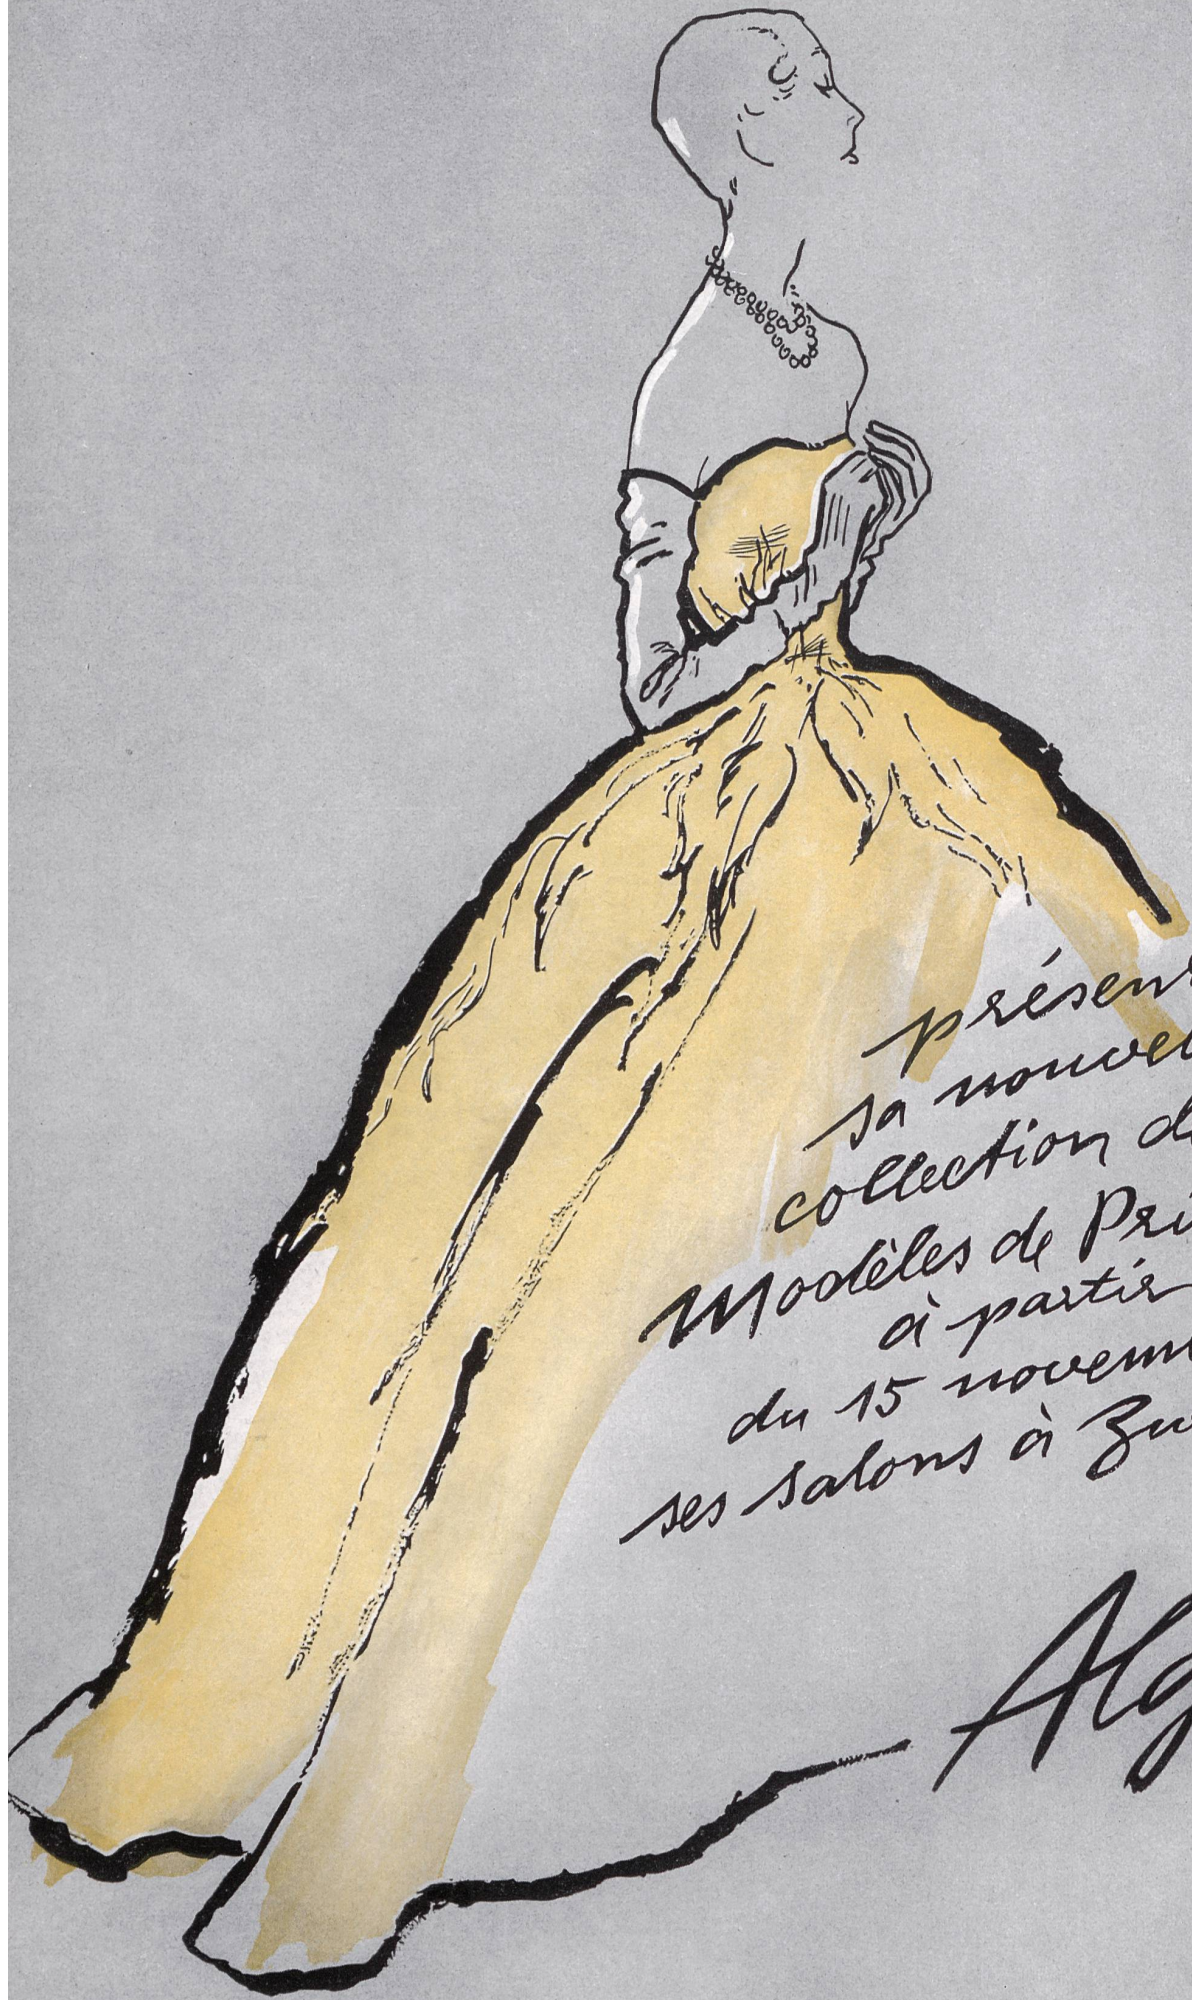 présent
sa nouvel
collection de
Modèles de Pri
à partir
du 15 novem
ses salons à Zu
Alg